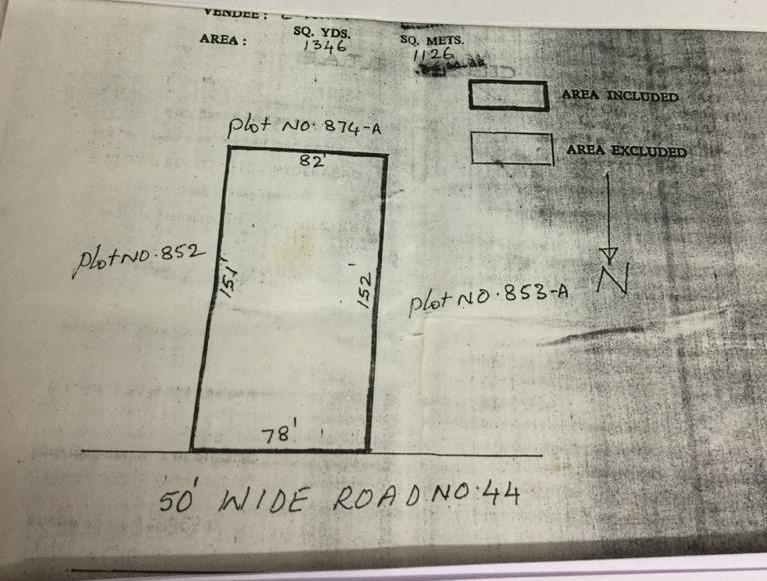 VENDEE :
AREA : SQ. YDS. SQ. METS.
1346 1126
AREA INCLUDED
AREA EXCLUDED
Plot NO. 874-A
82'
Plot NO. 852
151'
152'
Plot NO. 853-A
N
78'
50' WIDE ROAD NO. 44